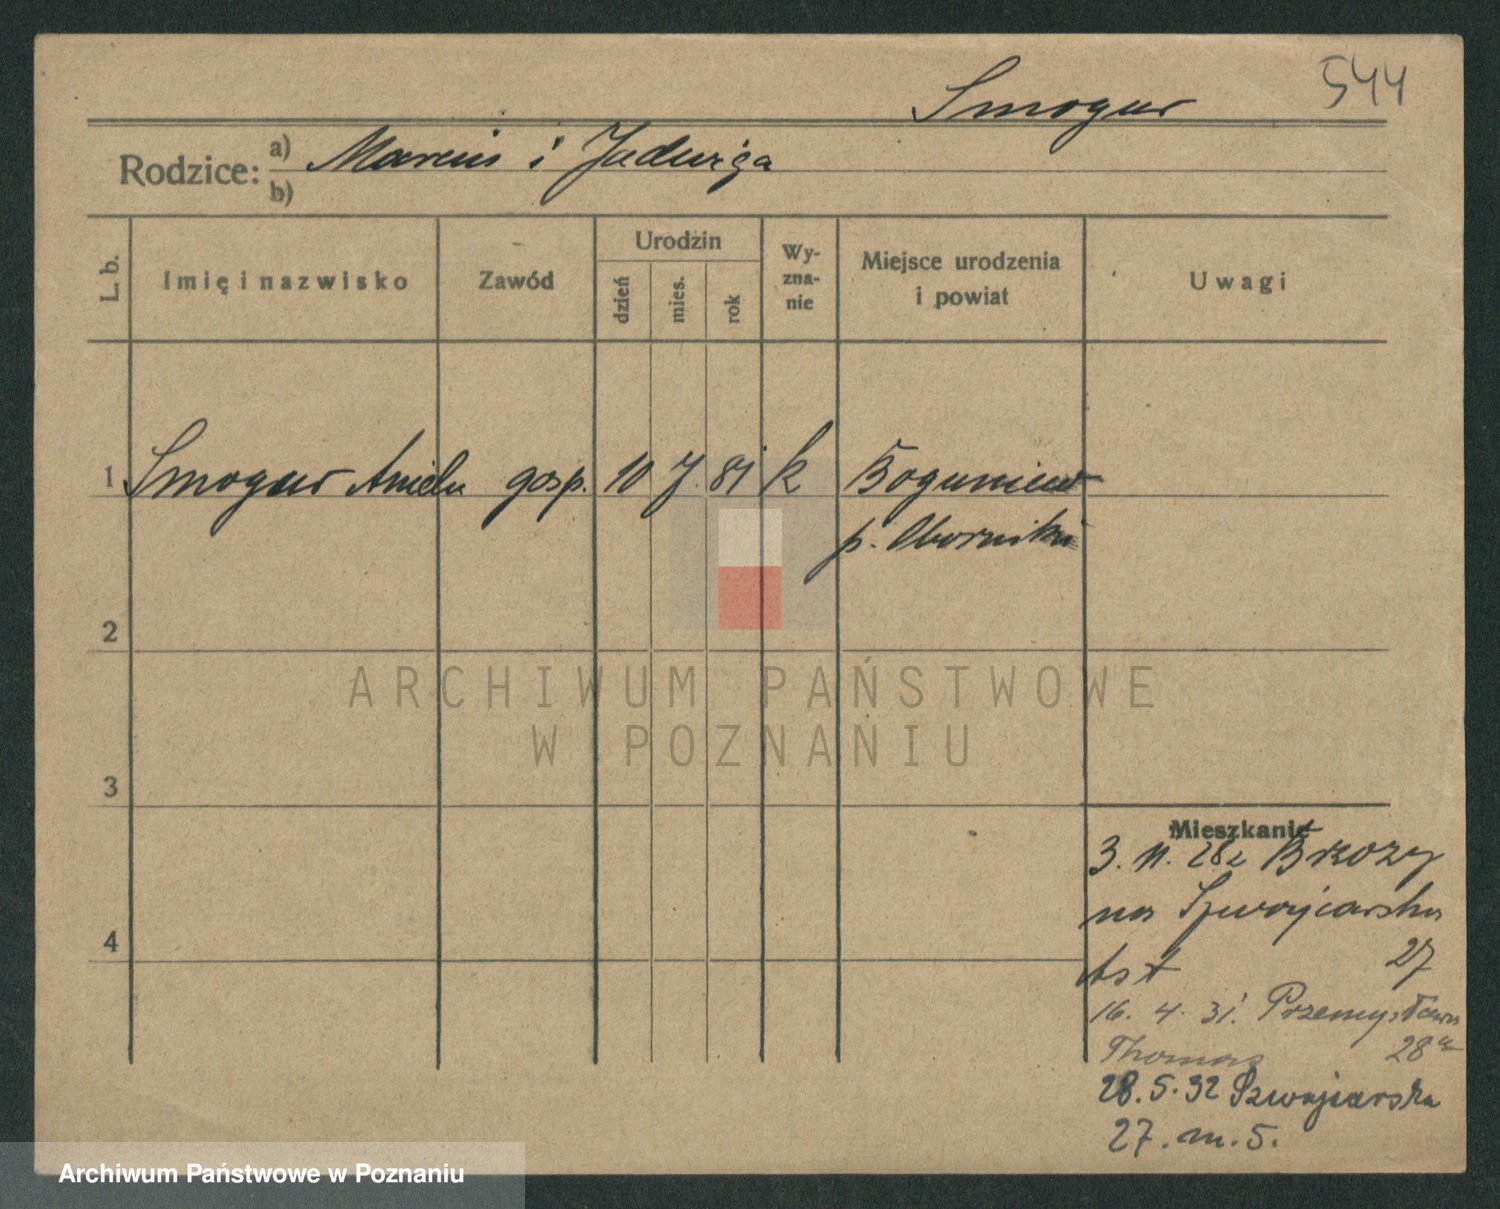 544
Smogur
Rodzice: a) Marcin i Jadwiga
b)
L. b. Imię i nazwisko Zawód Urodzin dzień mies. rok Wy-zna-nie Miejsce urodzenia i powiat Uwagi
1 Smogur Aniela gosp. 10 7. 81 k Boguniewo
p. Oborniki
2
ARCHIWUM PAŃSTWOWE
W POZNANIU
3
Mieszkanie
3. 11. 28 z Brzozy
na Szwajcarska
4
27
16. 4. 31. Przemysława
Thomas 28a
28.5.32 Szwajcarska
27. m. 5.
Archiwum Państwowe w Poznaniu